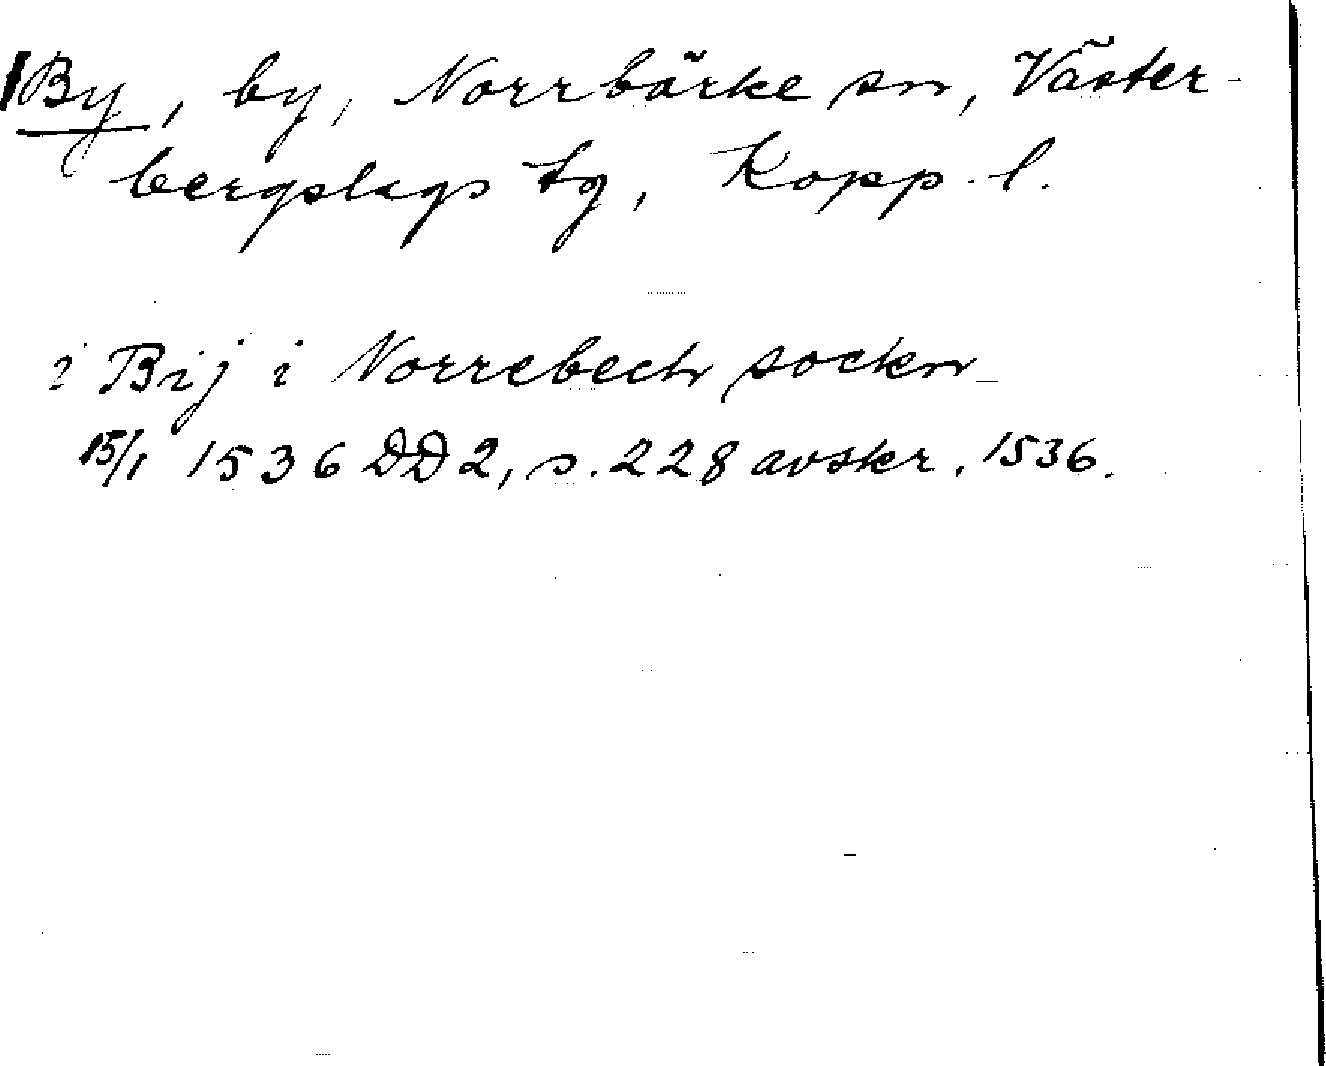 By, by, Norrbärke sn, Väster-
bergslags tg, Kopp. l.
i Bij i Norrebech sockn
15/1 1536 DD 2, s. 228 avskr. 1536.